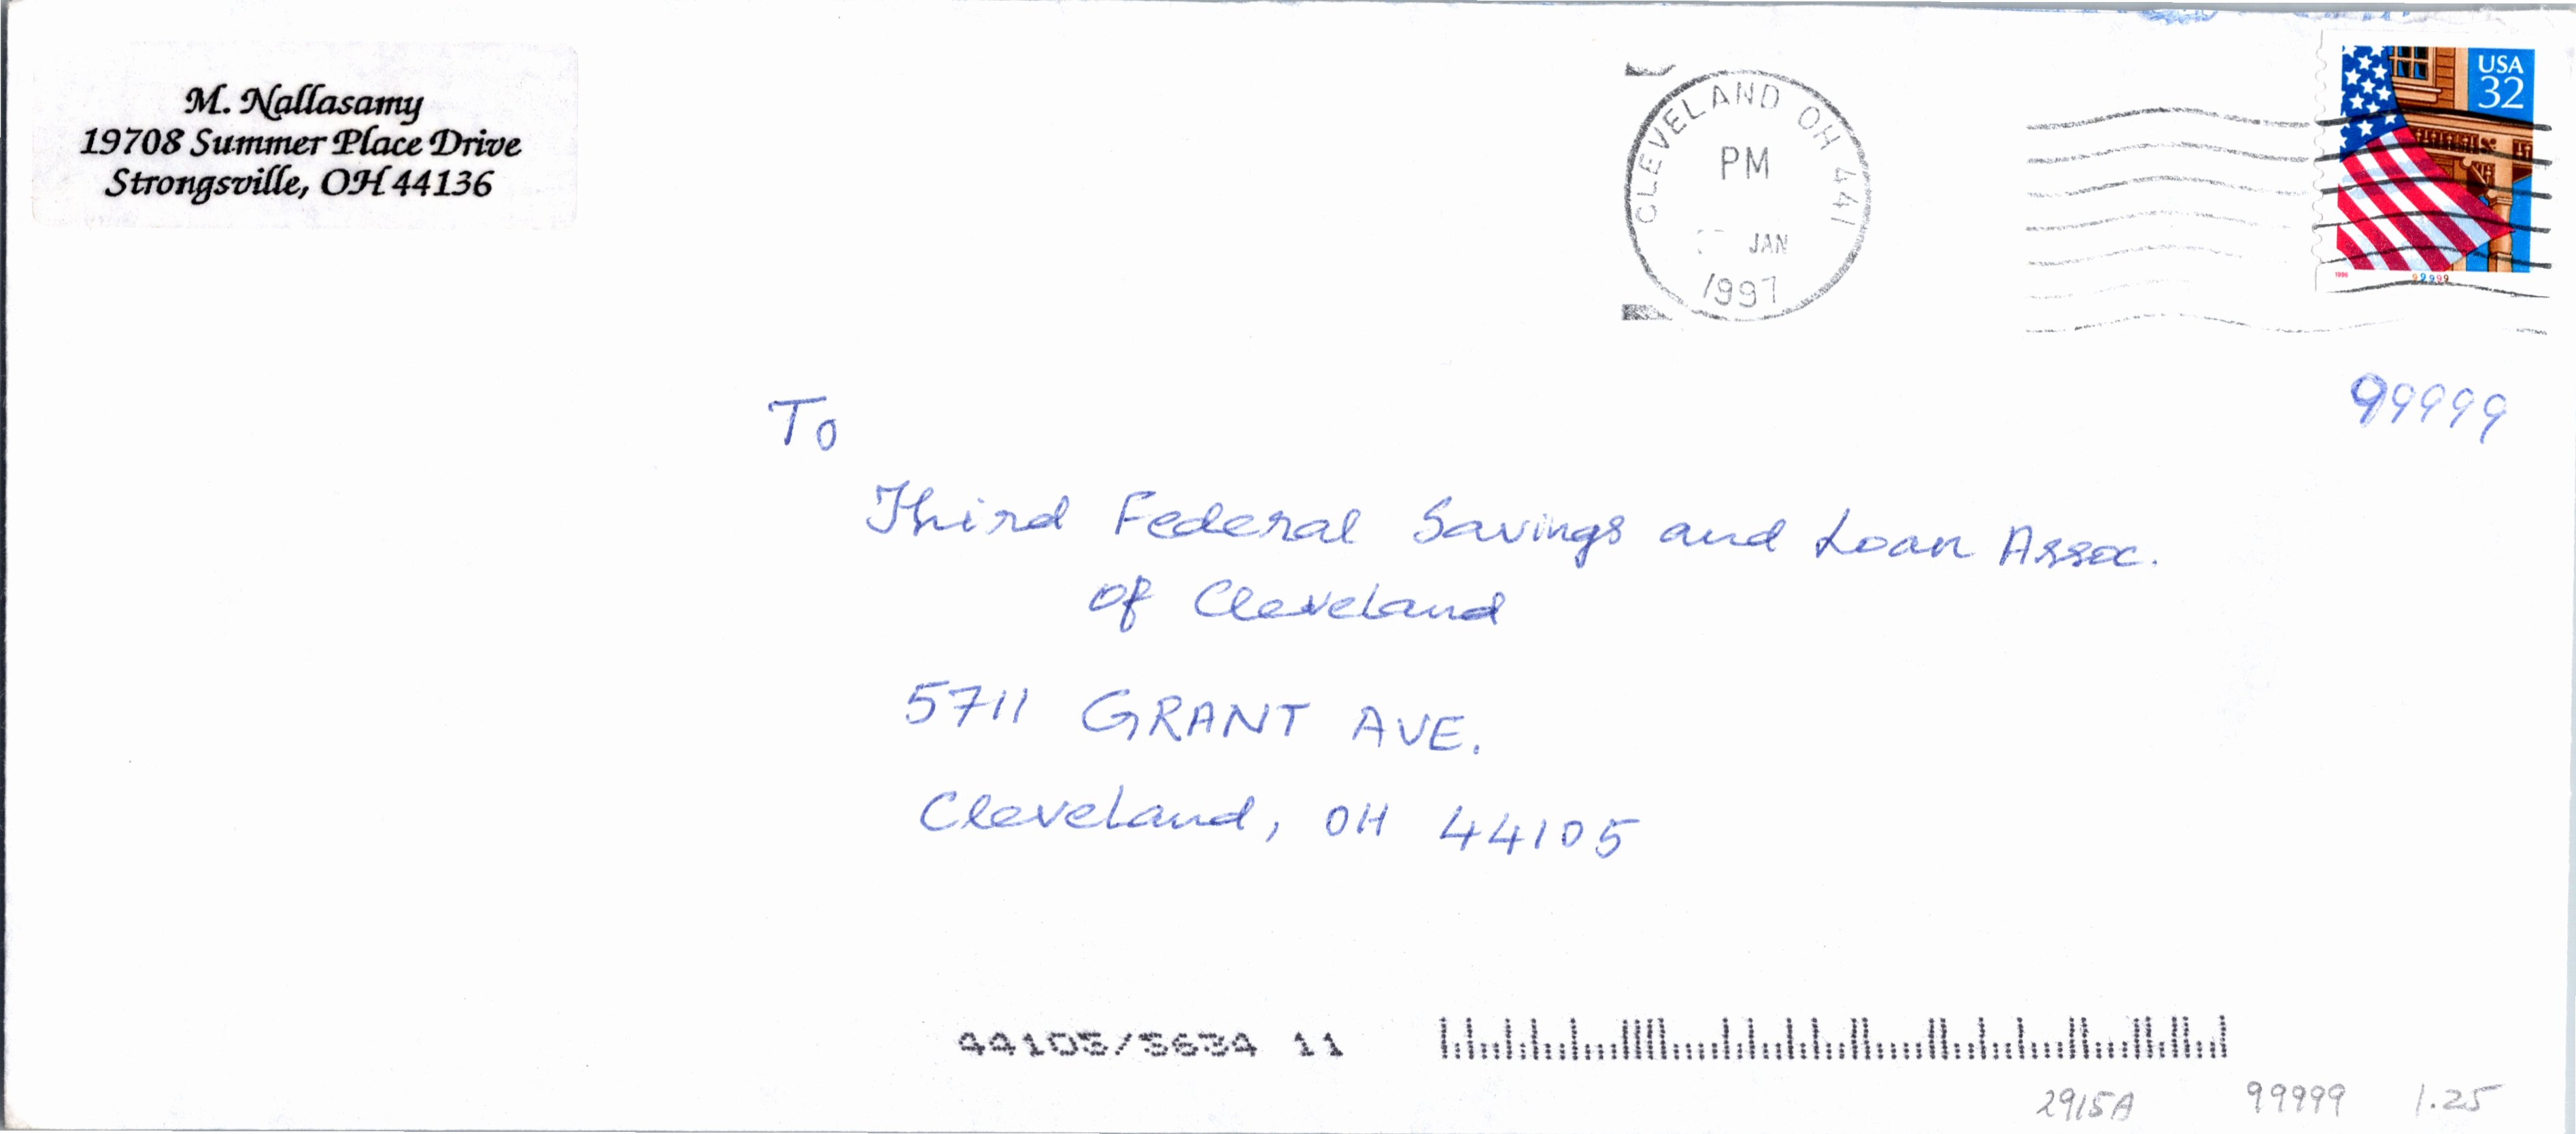 M. Nallasamy
19708 Summer Place Drive
Strongsville, OH 44136
CLEVELAND OH 441
PM
JAN
1997
USA
32
1996
99999
To
Third Federal Savings and Loan Assoc.
of Cleveland
5711 GRANT AVE.
Cleveland, OH 44105
44105/5634 11
2915A 99999 1.25